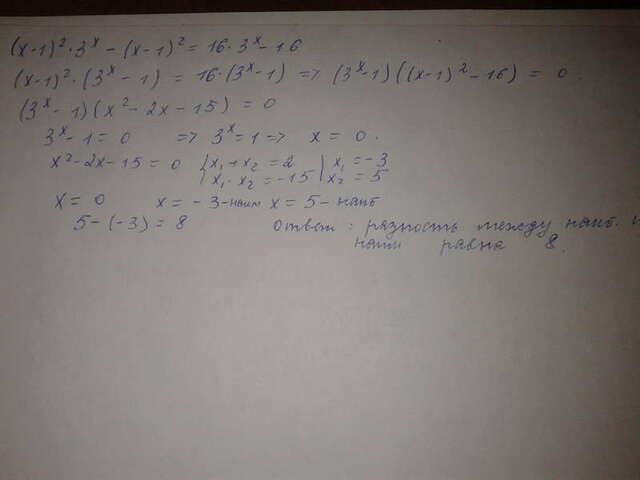 (x-1)²·3ˣ-(x-1)²=16·3ˣ-16
(x-1)²·(3ˣ-1)=16·(3ˣ-1) => (3ˣ-1)((x-1)²-16)=0.
(3ˣ-1)(x²-2x-15)=0
3ˣ-1=0 => 3ˣ=1 => x=0.
x²-2x-15=0 {x₁+x₂=2 | x₁=-3
x₁·x₂=-15 | x₂=5
x=0 x=-3-наим x=5-наиб
5-(-3)=8 Ответ: разность между наиб. и
наим равна 8.